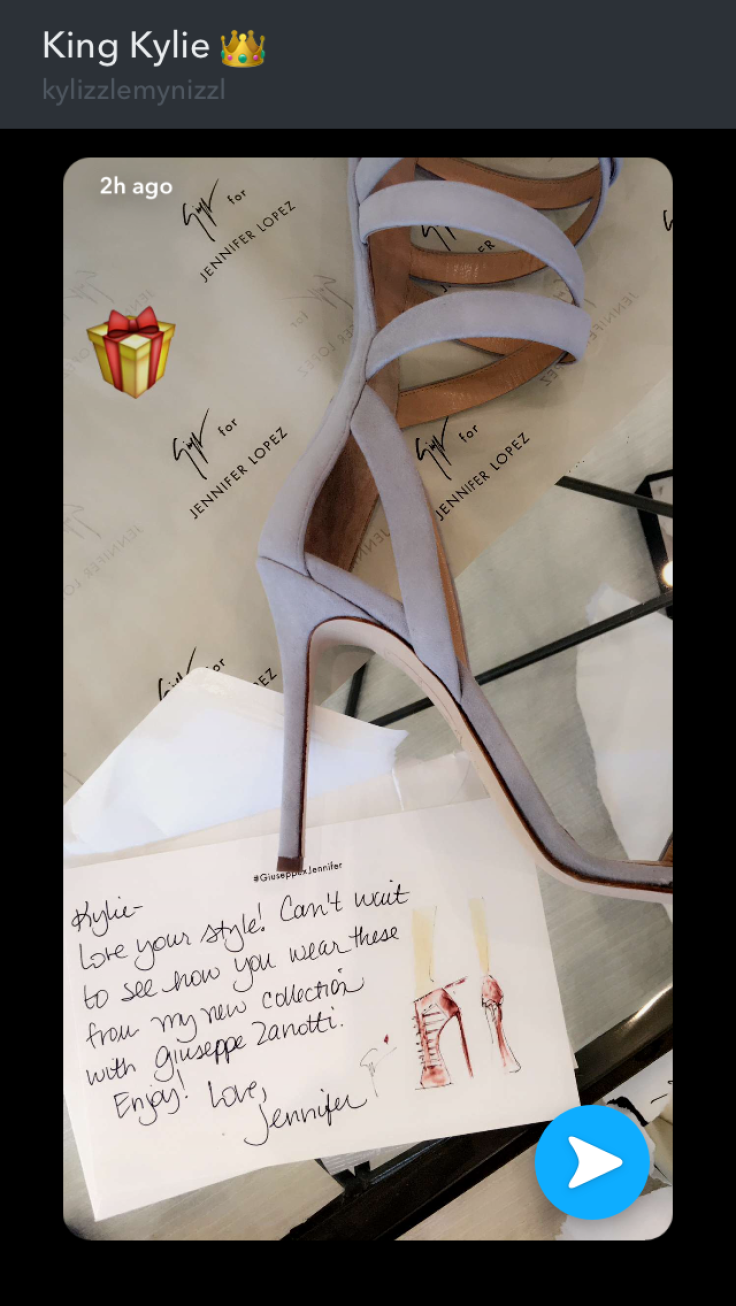 King Kylie 👑
kylizzlemynizzl
2h ago
for
JENNIFER LOPEZ
ER
for
JENNIFER LOPEZ
for
JENNIFER LOPEZ
or
EZ
#GiuseppexJennifer
Kylie-
Love your style! Can't wait
to see how you wear these
from my new collection
with Giuseppe Zanotti.
Enjoy! Love,
Jennifer